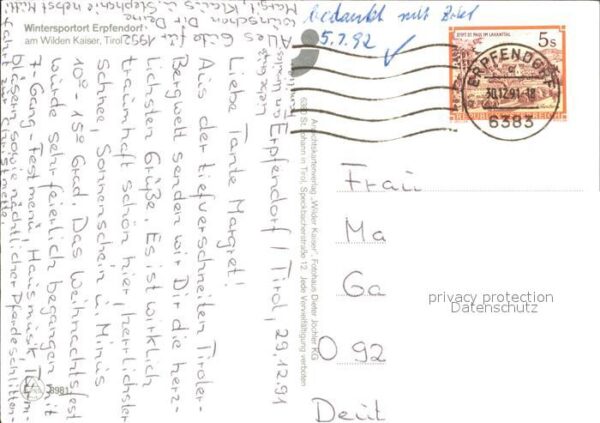 Wintersportort Erpfendorf
am Wilden Kaiser, Tirol
Erpfendorf / Tirol, 29.12.91
Liebe Tante Margret!
Aus der tiefverschneiten Tiroler-
Bergwelt senden wir Dir die herz-
lichsten Grüße. Es ist wirklich
traumhaft schön hier, herrlichster
Schnee, Sonnenschein u. Minus
10° - 15° Grad. Das Weihnachtsfest
wurde sehr feierlich begangen mit
7-Gang-Festmenü, Hausmusik, Turm-
blasen, sowie nächtlicher Pferdeschlitten-
fahrt zur Christmette.
Alles Gute für 1992
wünschen Dir Deine
Margit, Klaus u. Stephanie nebst Mutti
bedankt mit Brief
5.1.92
Ansichtskartenverlag „Wilder Kaiser", Fotohaus Dieter Jöchler KG
6380 St. Johann in Tirol, Speckbacherstraße 12. Jede Vervielfältigung verboten
8981
STIFT ST. PAUL IM LAVANTTAL
5 S
REPUBLIK ÖSTERREICH
ERPFENDORF
30.12.91-18
6383
Frau
Ma
Ga
O 92
Deut
privacy protection
Datenschutz